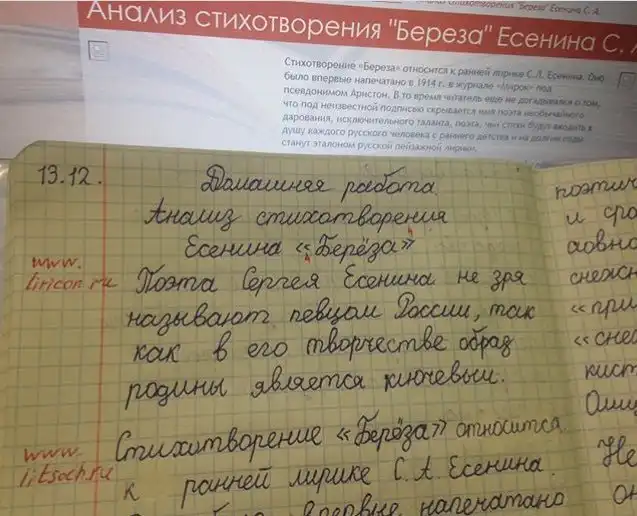 Анализ стихотворения "Береза" Есенина С. А.
Анализ стихотворения "Береза" Есенина С.
Стихотворение «Береза» относится к ранней лирике С.А. Есенина. Оно
было впервые напечатано в 1914 г. в журнале «Мирок» под
псевдонимом Аристон. В то время читатель еще не догадывался о том,
что под неизвестной подписью скрывается имя поэта необычайного
дарования, исключительного таланта, поэта, чьи стихи будут входить в
душу каждого русского человека с раннего детства и на долгие годы
станут эталоном русской пейзажной лирики.
13.12.
Домашняя работа
Анализ стихотворения
Есенина «Берёза»
www.
liricon.ru
Поэта Сергея Есенина не зря
называют певцом России, так
как в его творчестве образ
родины является ключевым.
www.
litsoch.ru
Стихитворение «Берёза» относится
к ранней лирике С. А. Есенина.
впервые напечатано
поэтич
и сра
снежн
«при
«сне
кист
Не
он